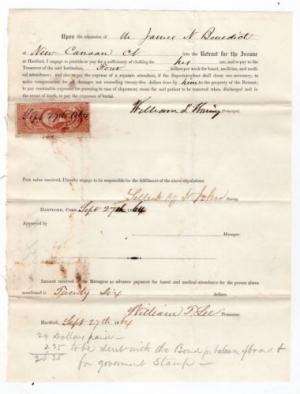 Upon the admission of Mr James N Benedict
of New Canaan Ct into the Retreat for the Insane
at Hartford, I engage to provide or pay for a sufficiency of clothing for his use, and to pay to the
Treasurer of the said institution, Four dollars per week for board, medicine, and medi-
cal attendance; and also to pay the expense of a separate attendant, if the Superintendent shall deem one necessary,
to make compensation for all damages not exceeding twenty-five dollars done by him to the property of the Retreat;
to pay reasonable expense for pursuing in case of elopement cause the said patient to be removed when discharged and in
the event of death, to pay the expenses of burial.
William T. Waring Principal.
Sept 27th 1864
For value received, I hereby engage to be responsible for the fulfillment of the above stipulations.
St John Surety.
Hartford, Conn. Sept 27th 64
Approved by
Manager.
Interest received the Managers as advance payment for board and medical attendance for the person above
mentioned is Twenty Six dollars.
William T. Lee Treasurer.
Hartford, Sept 27th 1864
24 Dollars paid
2.25 to be sent with the Bond for balance of board &
26.25 for government Stamp